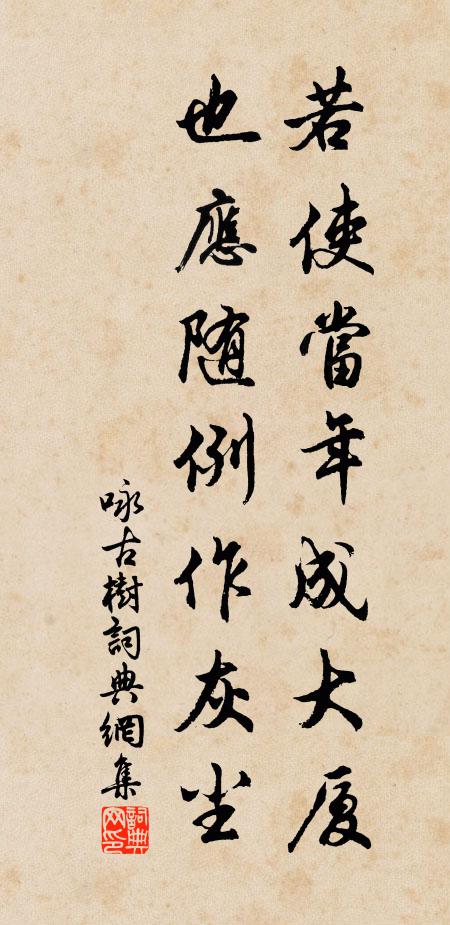 若使當年成大厦
也應随例作灰尘
咏古樹詞典網集
詞典网印